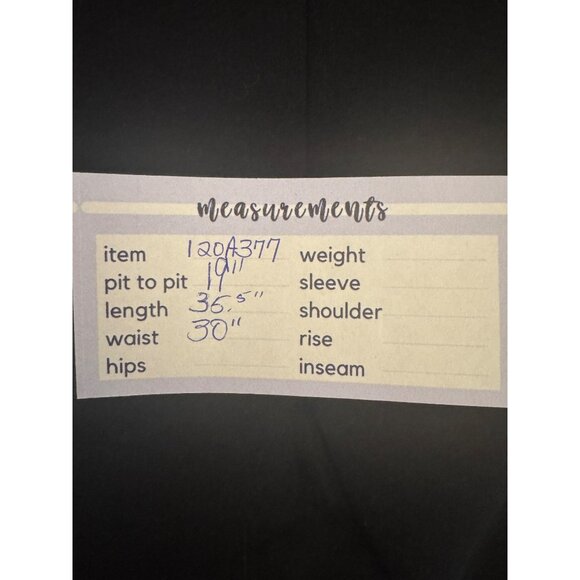 measurements
item 120A377 weight
pit to pit 19" sleeve
length 36.5" shoulder
waist 30" rise
hips inseam